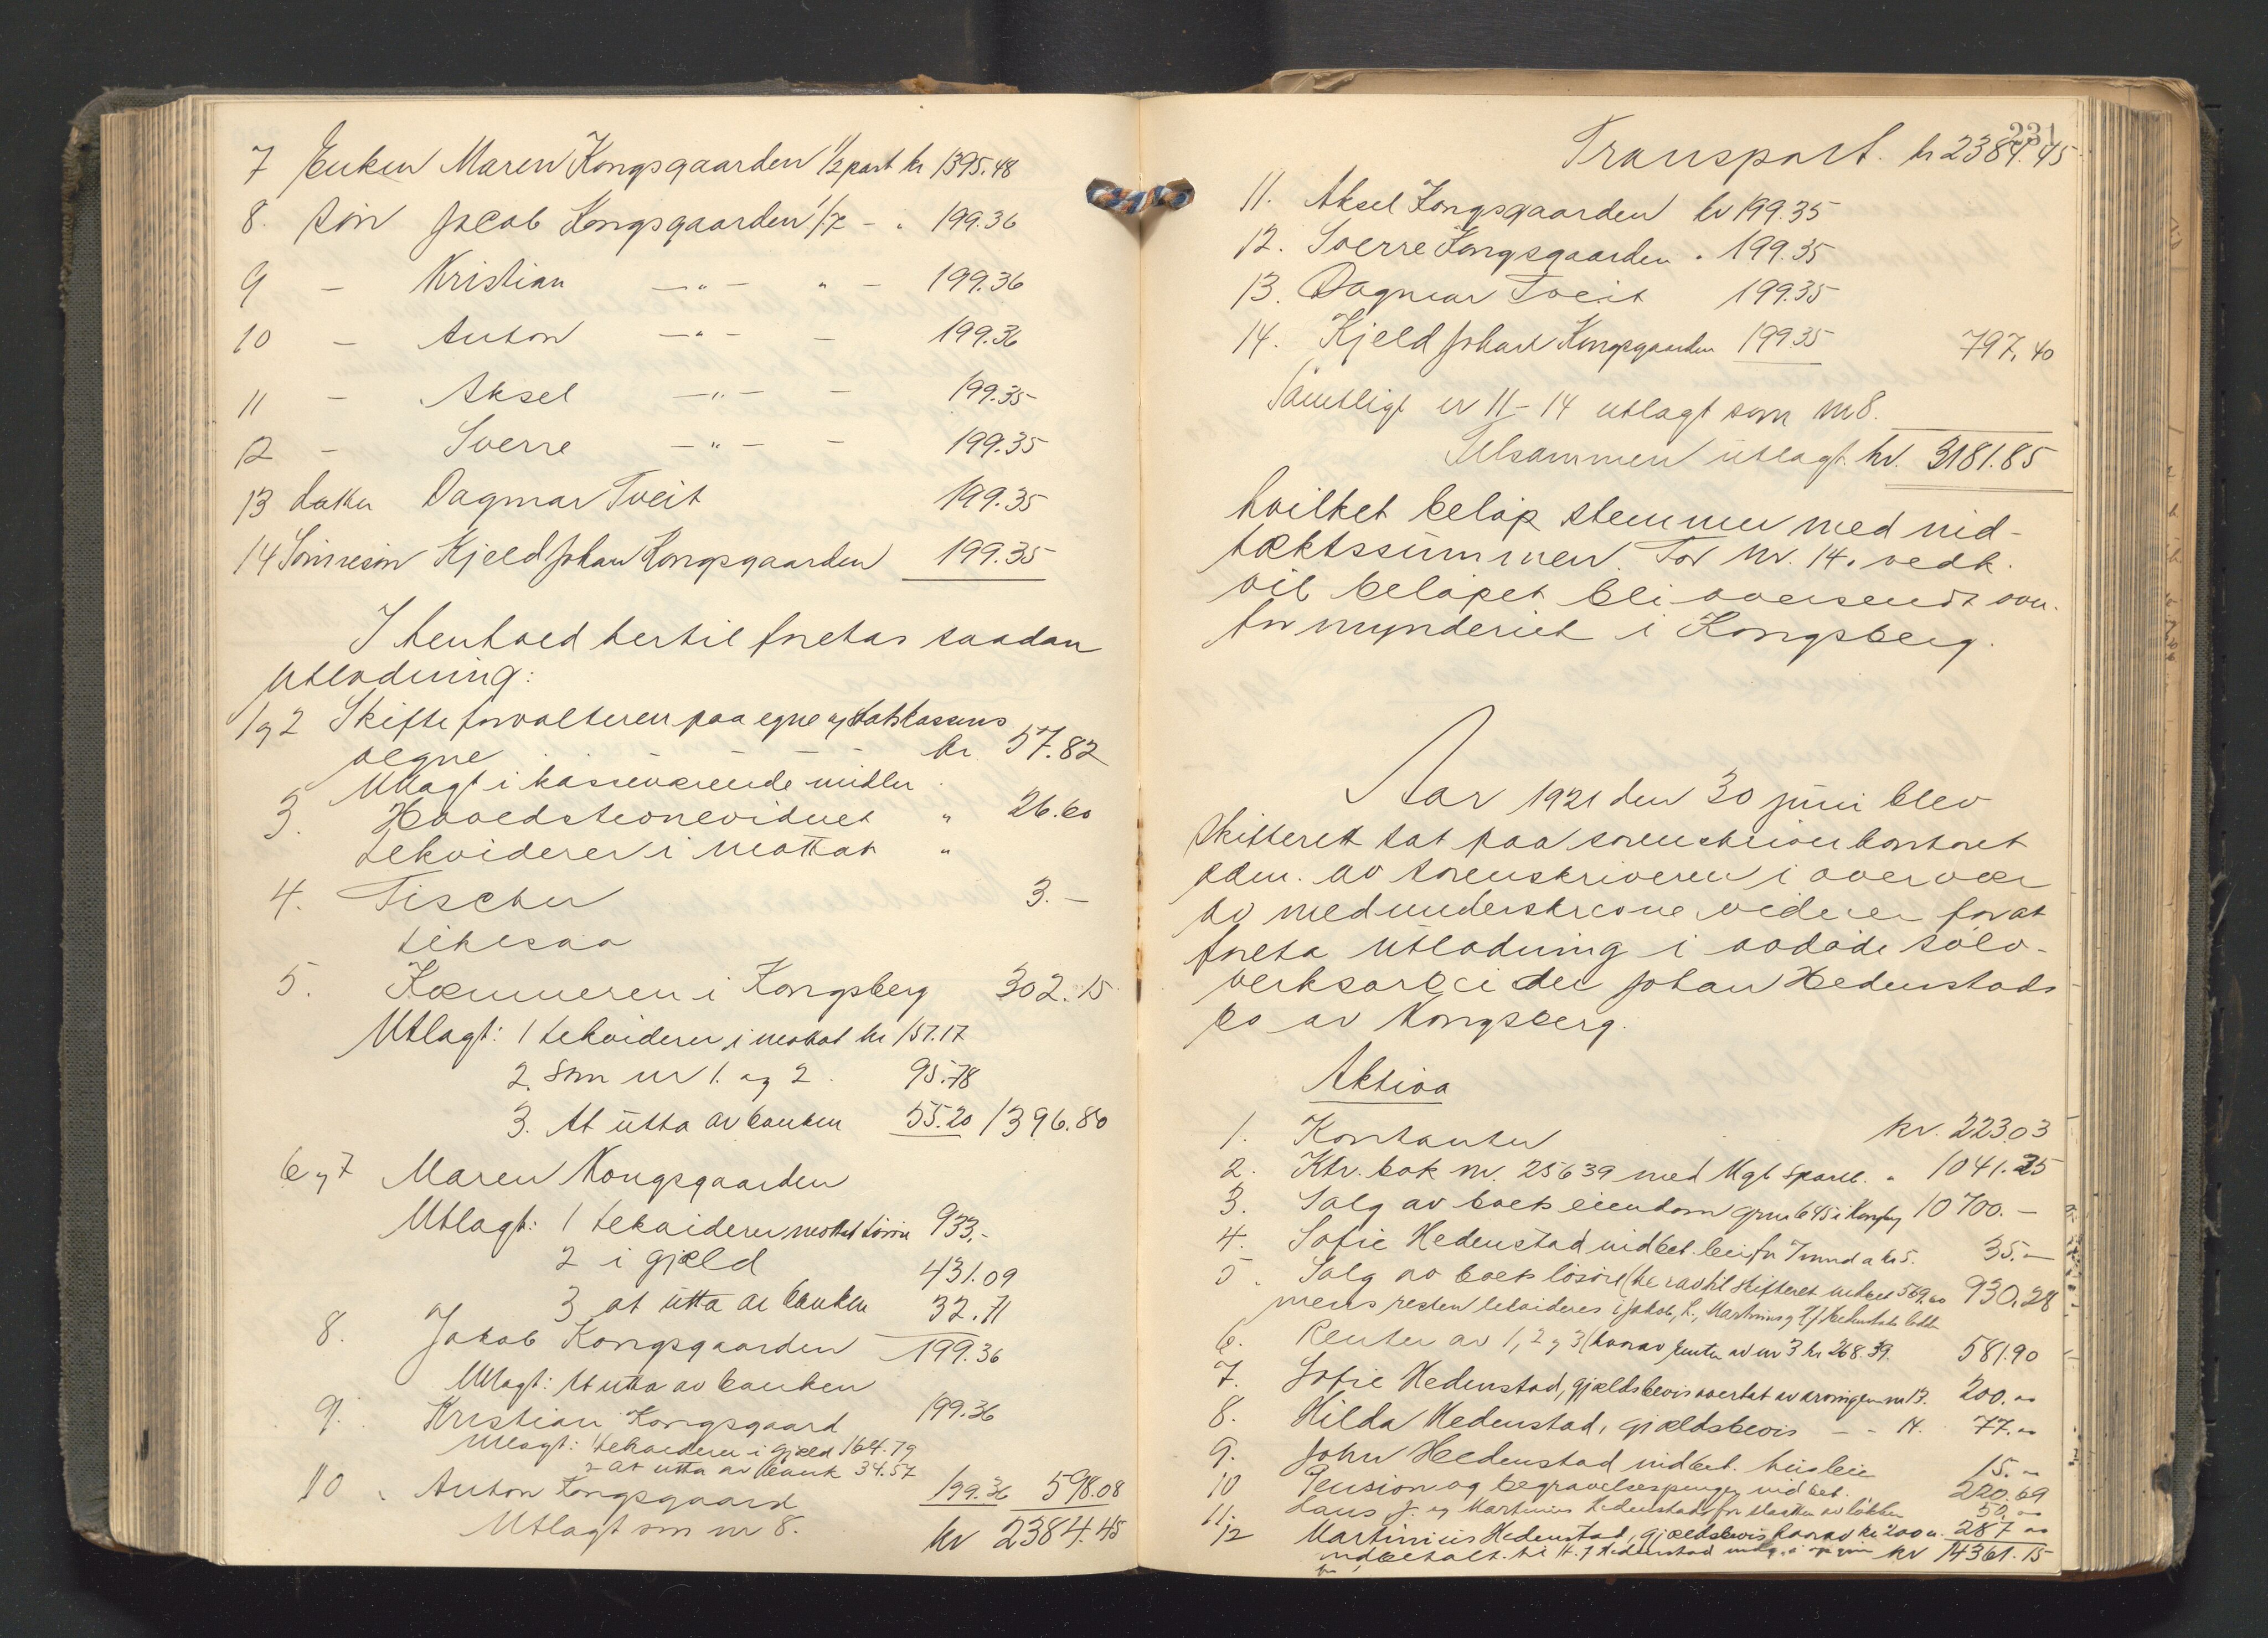 7 Enken Maren Kongsgaarden 1/2 part kr 1395.48
8. søn Jacob Kongsgaarden 1/7 - " 199.36
9 - Kristian -"- " - 199.36
10 - Anton -"- - 199.36
11 - Aksel -"- - 199.35
12 - Sverre -"- - 199.35
13 datter Dagmar Tveit 199.35
14 Sønnesøn Kjeld Johan Kongsgaarden 199.35
I henhold hertil foretas saadan
utlodning:
1 og 2 Skifteforvalteren paa egne og statskassens
vegne - - - - kr 57.82
Utlagt i kasseværende midler
3. Hovedstionevidnet " 26.60
Likviderer i mottat "
4. Fischer 3.-
likesaa
5. Kæmneren i Kongsberg 302.15
Utlagt: 1 likviderer i mottat kr 151.17
2. Som nr 1. og 2. 95.78
3. At utta av banken 55.20 1396.80
6 og 7 Maren Kongsgaarden
Utlagt: 1 likviderer mottat løsøre 933.-
2 i gjæld 431.09
3 at utta av banken 32.71
8. Jakob Kongsgaarden 199.36
Utlagt: At utta av banken
9. Kristian Kongsgaard 199.36
Utlagt: 1 likviderer i gjæld 164.79
2 at utta av bank 34.57
10. Anton Kongsgaard 199.36 598.08
Utlagt som nr 8.
kr 2384.45
231
Transport. kr 2384.45
11. Aksel Kongsgaarden kr 199.35
12. Sverre Kongsgaarden " 199.35
13. Dagmar Tveit 199.35
14. Kjeld Johan Kongsgaarden 199 35 797,40
Samtlige nr 11-14 utlagt som nr 8.
Tilsammen utlagt kr. 3181.85
hvilket beløp stemmer med ind-
tæktssummen. For Nr. 14. vedk.
vil beløpet bli oversendt over-
formynderiet i Kongsberg.
Aar 1921 den 30 juni blev
skifteret sat paa sorenskriverkontoret
adm. av sorenskriveren i overvær
av medunderskrevne vidner for at
foreta utlodning i avdøde sølv-
verksarbeider Johan Hedenstads
bo av Kongsberg.
Aktiva
1. Kontanter kr. 223.03
2. Ktr. bok nr. 25639 med Kgb Spareb. " 1041.25
3. Salg av boets eiendom grnr 645 i Kongsbg 10700.-
4. Sofie Hedenstad indbet. leie for 7 mnd a kr 5. 35.-
5. Salg av boets løsøre (herav til skifteret indbet 569.60 930.28
mens resten likvideres i Jakob, H., Martinius og H J Hedenstads lodder
6. Renter av 1, 2 og 3 (herav renter av nr 3 kr 268.39. 581.90
7. Sofie Hedenstad, gjældsbevis overtat av arvingen nr 13. 200.-
8. Hilda Hedenstad, gjældsbevis - - 14. 77.-
9. John Hedenstad indbet. husleie 15.-
10 Pension og begravelsespenger indbet. 220.69
11. Hans J. og Martinius Hedenstad for slaatten av løkken 50.-
12 Martinius Hedenstad, gjældsbevis herav kr 200 287.-
indbetalt. kr 14361.15